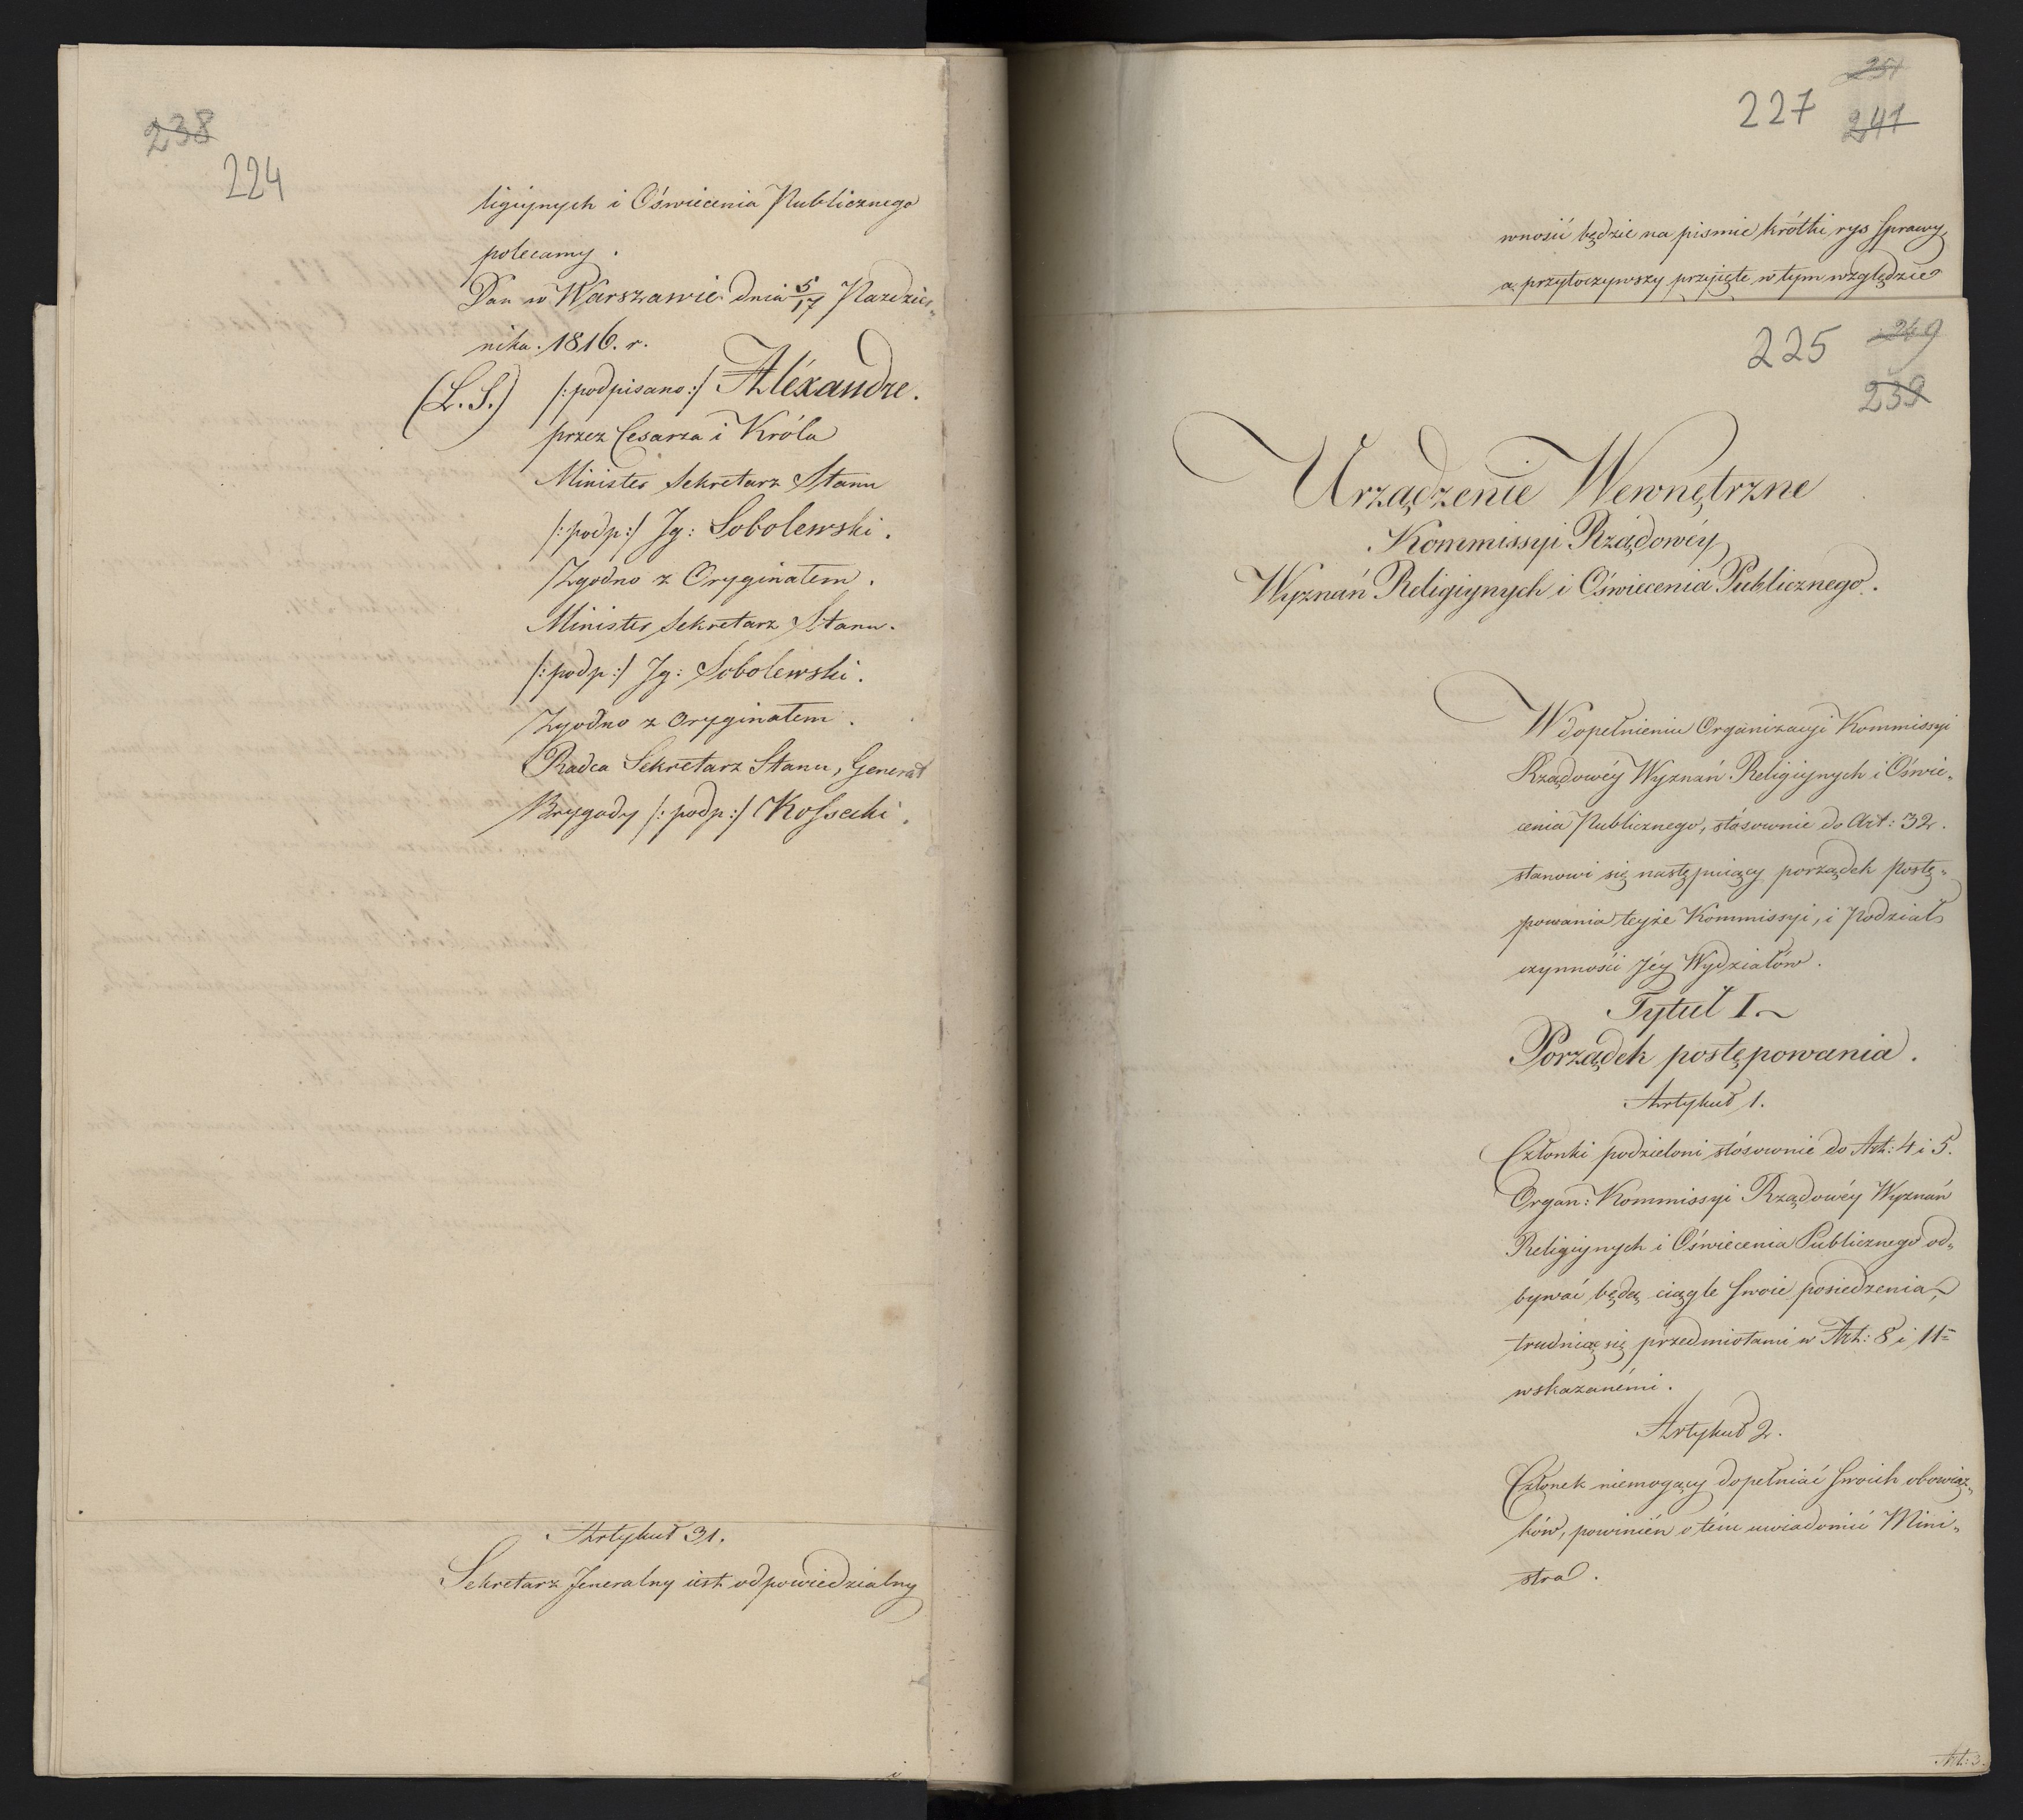 238
224
ligiynych i Oświecenia Publicznego
polecamy.
Dan w Warszawie dnia 5/17 Pazdzier„
nika. 1816. r.
(L. S.) /:podpisano:/ Aléxandre.
przez Cesarza i Króla
Minister Sekretarz Stanu
/:podp:/ Jg: Sobolewski.
Zgodno z Oryginałem.
Minister Sekretarz Stanu.
/:podp:/ Jg: Sobolewski.
Zgodno z Oryginałem.
Radca Sekretarz Stanu, Generał
Brygady /:podp:/ Kossecki.
Artykuł 31.
Sekretarz Jeneralny iest odpowiedzialny
i
251
227 241
wnosić będzie na pismie krótki rys sprawy,
a przytoczywszy przyięte w tym względzie
225 249
239
Urządzenie Wewnętrzne
Kommissyi Rządowéy
Wyznań Religiynych i Oświecenia Publicznego.
W dopełnieniu Organizacyi Kommissyi
Rządowéy Wyznań Religiynych i Oświe„
cenia Publicznego, stosownie do Art: 32.
stanowi się następuiący porządek postę„
powania teyże Kommissyi, i Podział
czynności Jéy Wydziałów.
Tytuł I.
Porządek postępowania.
Artykuł 1.
Członki podzieloni stósownie do Art: 4 i 5.
Organ: Kommissyi Rządowéy Wyznań
Religiynych i Oświecenia Publicznego od„
bywać będą ciągle swoie posiedzenia,
trudniąc się przedmiotami w Art: 8 i 11=
wskazanémi.
Artykuł 2.
Członek niemogący dopełniać swoich obowiąz„
ków, powinién o tém uwiadomić Mini„
stra.
Art: 3.